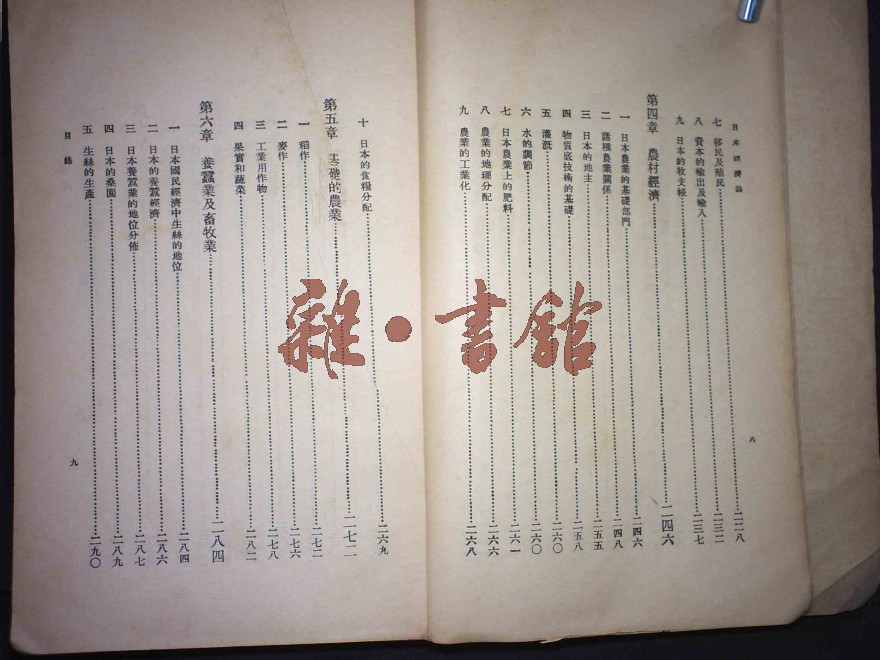 日本經濟論
七 移民及殖民……二二八
八 資本的輸出及輸入……二三二
九 日本的收支帳……二三七
第四章 農村經濟……二四六
一 日本農業的基礎部門……二四六
二 諸種農業關係……二四八
三 日本的地主……二五五
四 物質底技術的基礎……二五八
五 灌溉……二六〇
六 水的調節……二六〇
七 日本農業上的肥料……二六一
八 農業的地理分配……二六六
九 農業的工業化……二六八
八
十 日本的食糧分配……二六九
第五章 基礎的農業……二七二
一 稻作……二七二
二 麥作……二七六
三 工業用作物……二七八
四 果實和蔬菜……二八二
第六章 養蠶業及畜牧業……二八四
一 日本國民經濟中生絲的地位……二八四
二 日本的養蠶經濟……二八六
三 日本養蠶業的地位分佈……二八七
四 日本的桑園……二八九
五 生絲的生產……二九〇
目錄
九
雜·書館